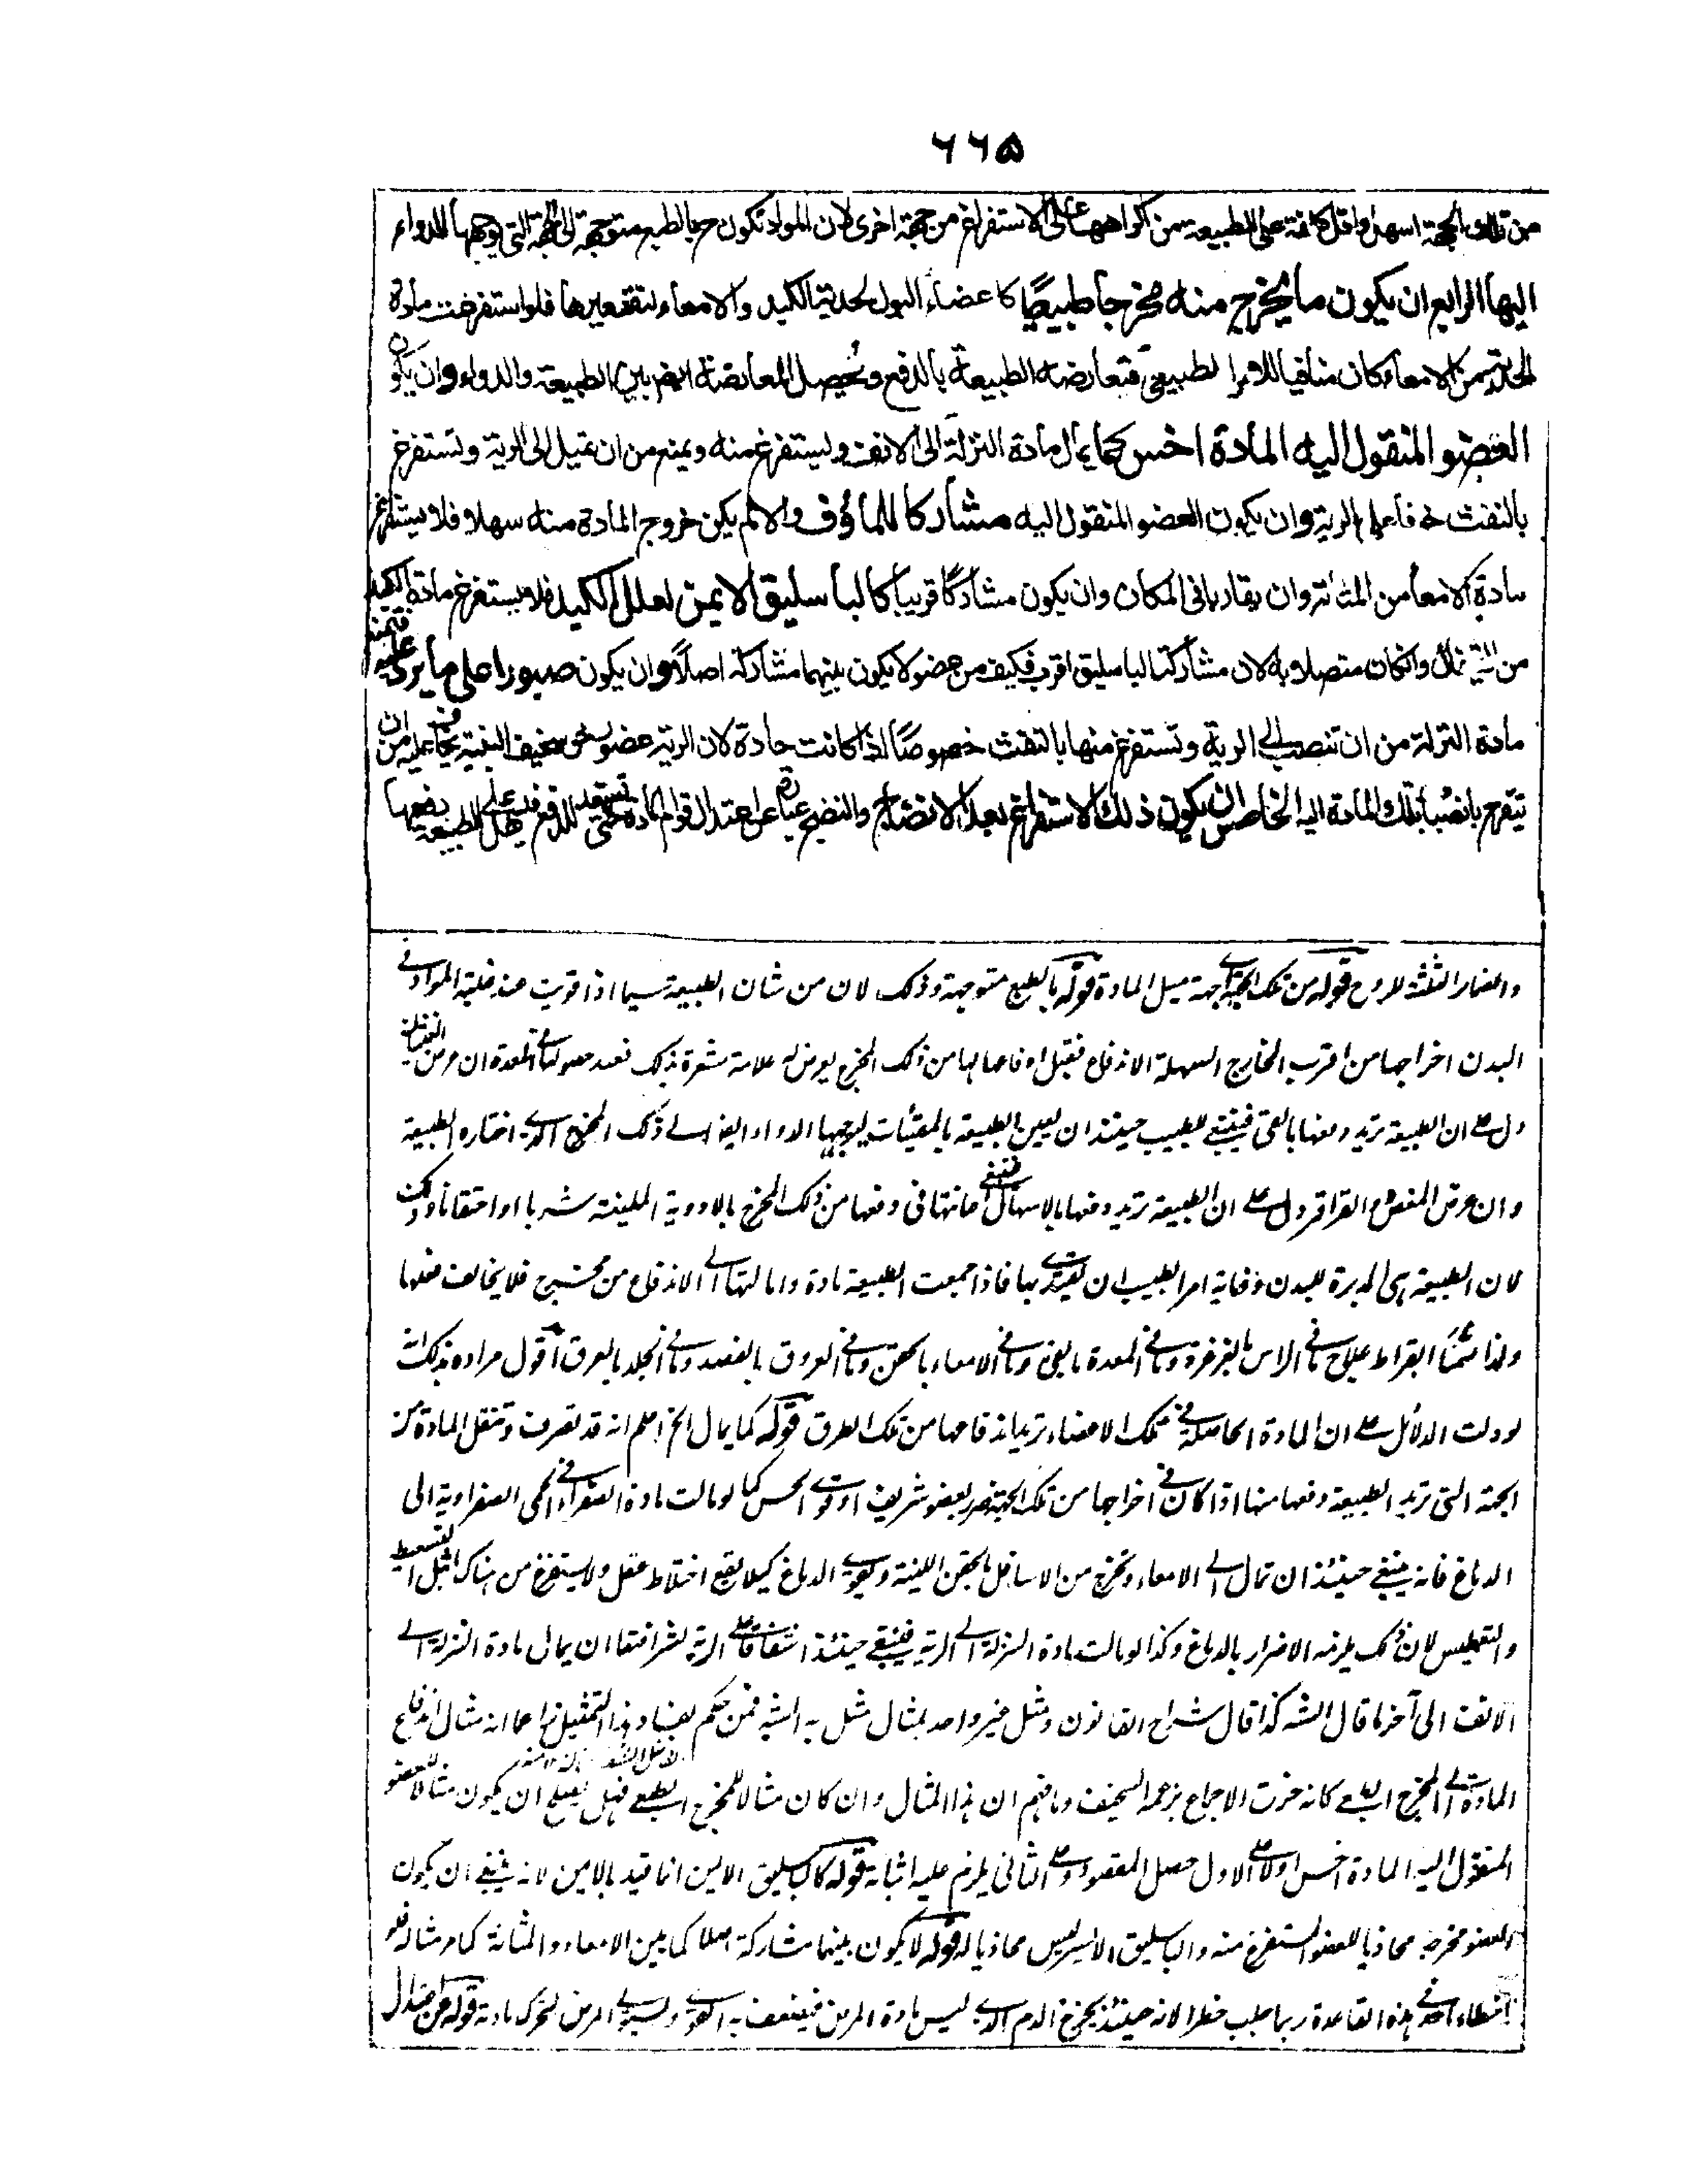 ٦٦۵
من تلك الجهة اسهل واقل كلفة على الطبيعة من اكراهها على الاستفراغ من جهة اخرى لان المواد تكون ح بالطبع متوجهة الى الجهة التى يوجهها الدواء
اليها الرابع ان يكون ما يخرج منه مخرجا طبيعيًا كاعضاء البول لحدبة الكبد والامعاء لتقعيرها فلو استفرغت مادة
الحدبة من الامعاء كان منافيا للامر الطبيعى فتعارضه الطبيعة بالدفع وتحصل المعارضة بين الطبيعة والدواء وان يكون
العضو المنقول اليه المادة اخس كما يمال مادة النزلة الى الانف ويستفرغ منه ويمنع من ان تميل الى الرية وتستفرغ
بالنفث وان يكون العضو المنقول اليه مشاركا للماؤف والا لم يكن خروج المادة منه سهلا فلا يستفرغ
مادة الامعا من المثانة وان يقاربا فى المكان وان يكون مشاركًا قريبا كالباسليق الايمن لعلل الكبد فلا يستفرغ مادة الكبد
من وان كان متصلا به لان مشاركة الباسليق اقرب فكيف من عضو لا يكون بينهما مشاركة اصلاً وان يكون صبورا على ما يرد عليه فتمنع
مادة النزلة من ان تنصب الى الرية وتستفرغ منها بالنفث خصوصًا اذا كانت حادة لان الرية عضو سخيف البنية يخاف عليه من ان
تتقرح بانصباب تلك المادة اليه الخامس ان يكون ذلك الاستفراغ بعد الانضاج والنضج عبارة عن اعتدال قوام المادة حتى تستعد للدفع فيسهل على الطبيعة دفعها
والمضار الثلثة للروح قوله من تلك الجهة اى جهة ميل المادة قوله بالطبع متوجهة وذلك لان من شان الطبيعة سيما اذا قويت عند غلبة المواد فى
البدن اخراجها من اقرب المخارج السهلة الاندفاع فقبل اندفاعها من ذلك المخرج يعرض له علامة مشعرة بذلك فعند حصولها فى المعدة ان عرض الغثيان
دل على ان الطبيعة تريد دفعها بالقئ فينبغى للطبيب حينئذ ان يعين الطبيعة بالمقيئات ليوجهها الدواء ايضا الى ذلك المخرج الذى اختاره الطبيعة
وان عرض المغص والقراقر دل على ان الطبيعة تريد دفعها بالاسهال فينبغى اعانتها فى دفعها من ذلك المخرج بالادوية الملينة شربا او احتقانا وذلك
لان الطبيعة هى المدبرة للبدن وغاية امر الطبيب ان يقتدى بها فاذا جمعت الطبيعة مادة وامالتها الى الاندفاع من مخرج فلا يخالف فعلها
ولذا قال ابقراط علاج ما فى الراس بالغرغرة وما فى المعدة بالقئ وما فى الامعاء بالحقن وما فى العروق بالفصد وما فى الجلد بالعرق اقول مراده بذلك انه
لو دلت الدلائل على ان المادة الحاصلة فى تلك الاعضاء تريد اندفاعها من تلك الطرق قوله كما يمال الخ اعلم انه قد تصرف وتنقل المادة من
الجهة التى تريد الطبيعة دفعها منها اذا كان فى اخراجها من تلك الجهة ضرر بعضو شريف او قوى الحس كما لو مالت مادة الصفراء فى الحمى الصفراوية الى
الدماغ فانه ينبغى حينئذ ان تمال الى الامعاء وتخرج من الاسافل بالحقن اللينة ويقوى الدماغ كيلا يقع اختلاط عقل ولا يستفرغ من هناك بمثل التسعيط
والتعطيس لان ذلك يلزمه الاضرار بالدماغ وكذا لو مالت مادة النزلة الى الرية فينبغى حينئذ اشفاقا على الرية لشرافتها ان يمال مادة النزلة الى
الانف الى آخر ما قال الشه كذا قال شراح القانون ومثل غير واحد بمثال مثل به الشه فمن حكم بفساد هذا التمثيل زاعما انه مثال اندفاع
المادة الى المخرج الطبعى كانه خرق الاجماع بزعمه السخيف وما فهم ان هذا المثال وان كان مثالا للمخرج الطبعى فهل يصلح ان يكون مثالا للعضو
المنقول اليه المادة اخس او لا على الاول حصل المقصود وعلى الثانى يلزم عليه اثباته قوله كالباسليق الايمن انما قيد بالايمن لانه ينبغى ان يكون
العضو مخرجه محاذيا للعضو المستفرغ منه والباسليق الايسر ليس محاذيا له قوله لا يكون بينهما مشاركة اصلا كما بين الامعاء والمثانة كما مر مثاله فلو
اخطاء احد فى هذه القاعدة ربما جلب خطرا لانه حينئذ يخرج الدم الذى ليس مادة المرض فيضعف به القوى ويستولى المرض لتحرك مادته قوله عن اعتدال